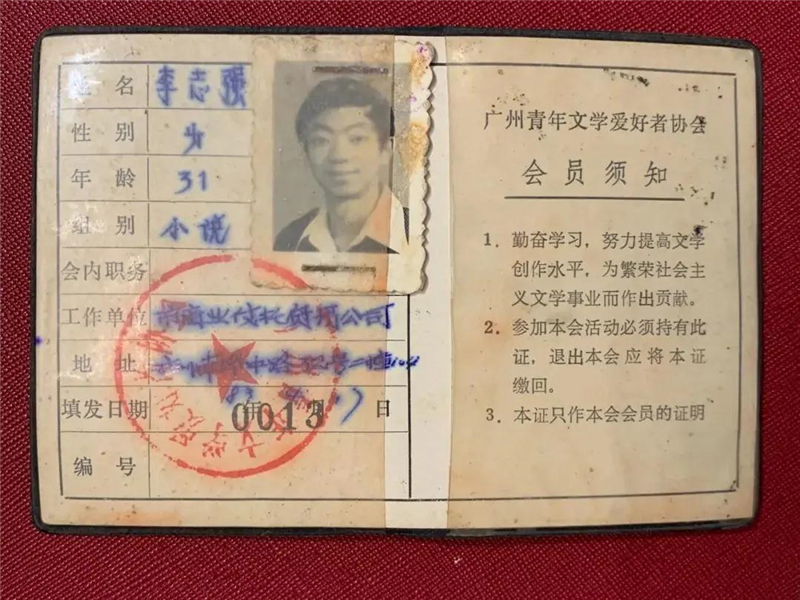 姓名 李志强
性别
年龄 31
组别 小说
会内职务
工作单位 公司
地址
填发日期 83年 月 17日
0013
编号
广州青年文学爱好者协会
会员须知
1. 勤奋学习，努力提高文学
创作水平，为繁荣社会主
义文学事业而作出贡献。
2. 参加本会活动必须持有此
证，退出本会应将本证
缴回。
3. 本证只作本会会员的证明